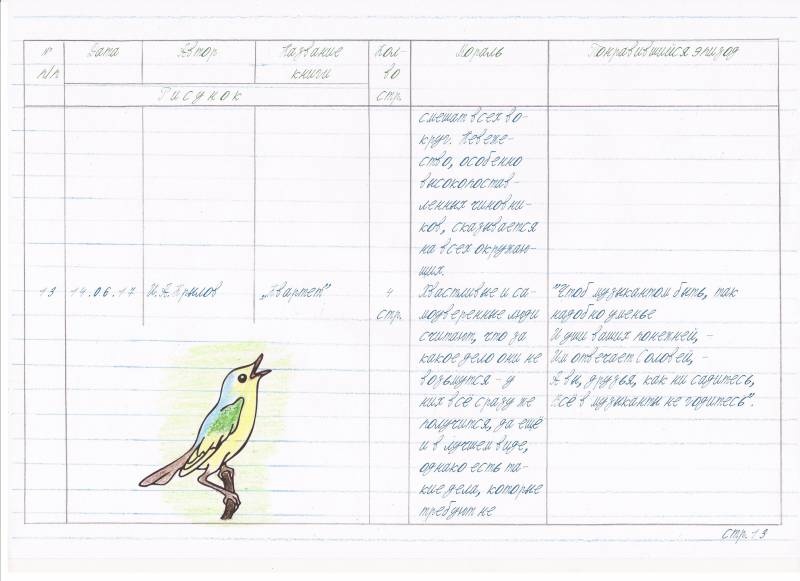 № п/п
Дата
Автор
Название
книги
Кол-
во
стр.
Мораль
Понравившийся эпизод
Рисунок
смешат всех во-
круг. Невеже-
ство, особенно
высокопостав-
ленных чиновни-
ков, сказывается
на всех окружаю-
щих.
13
14.06.17
И.А.Крылов
„Квартет"
4
стр.
Хвастливые и са-
модуверенные люди
считают, что за
какое дело они не
возьмутся - у
них всё сразу же
получится, да ещё
и в лучшем виде,
однако есть та-
кие дела, которые
требуют не
"Чтоб музыкантом быть, так
надобно уменье
И уши ваших понежней, -
Им отвечает Соловей, -
А вы, друзья, как ни садитесь,
Всё в музыканты не годитесь".
стр.13